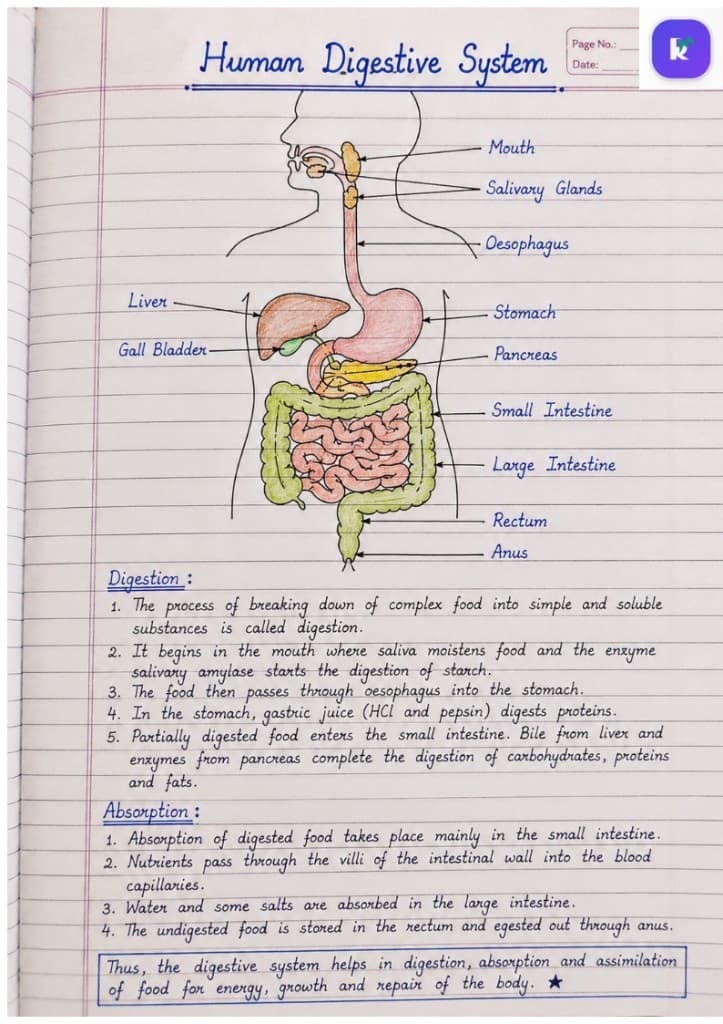 Human Digestive System
Page No.:
Date:
Mouth
Salivary Glands
Oesophagus
Liver
Stomach
Gall Bladder
Pancreas
Small Intestine
Large Intestine
Rectum
Anus
Digestion :
1. The process of breaking down of complex food into simple and soluble
substances is called digestion.
2. It begins in the mouth where saliva moistens food and the enzyme
salivary amylase starts the digestion of starch.
3. The food then passes through oesophagus into the stomach.
4. In the stomach, gastric juice (HCl and pepsin) digests proteins.
5. Partially digested food enters the small intestine. Bile from liver and
enzymes from pancreas complete the digestion of carbohydrates, proteins
and fats.
Absorption :
1. Absorption of digested food takes place mainly in the small intestine.
2. Nutrients pass through the villi of the intestinal wall into the blood
capillaries.
3. Water and some salts are absorbed in the large intestine.
4. The undigested food is stored in the rectum and egested out through anus.
Thus, the digestive system helps in digestion, absorption and assimilation
of food for energy, growth and repair of the body. ★